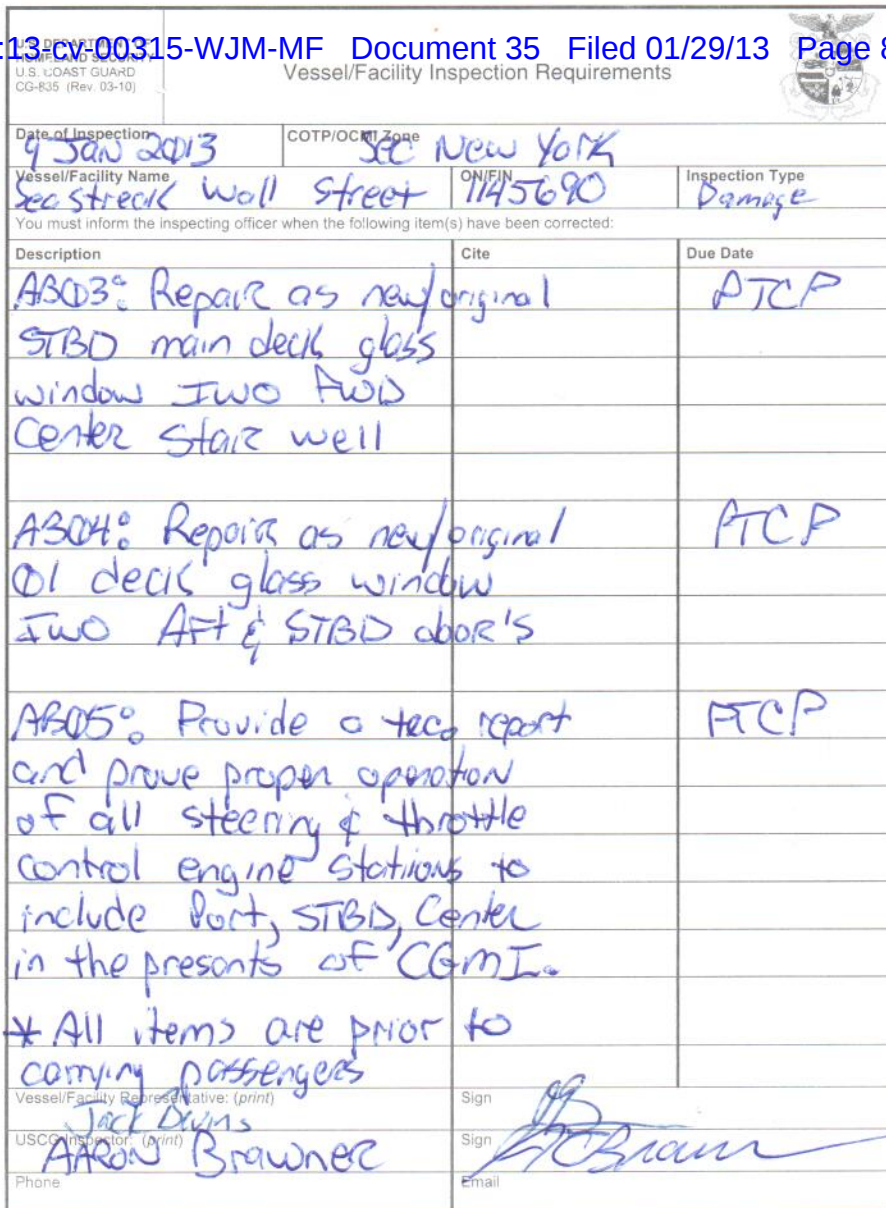 :13-cv-00315-WJM-MF Document 35 Filed 01/29/13 Page 8
U.S. DEPARTMENT OF
HOMELAND SECURITY
U.S. COAST GUARD
CG-835 (Rev. 03-10)
Vessel/Facility Inspection Requirements
Date of Inspection
9 Jan 2013
COTP/OCMI Zone
Sec New York
Vessel/Facility Name
Seastreak Wall Street
ON/FIN
1145690
Inspection Type
Damage
You must inform the inspecting officer when the following item(s) have been corrected:
Description Cite Due Date
AB03: Repair as new/original PTCP
STBD main deck glass
window IWO FWD
Center Stair well
AB04: Repair as new/original PTCP
01 deck glass window
IWO Aft & STBD door's
AB05: Provide a tech report PTCP
and prove proper operation
of all steering & throttle
control engine stations to
include Port, STBD, Center
in the presents of CGMI.
* All items are prior to
carrying passengers
Vessel/Facility Representative: (print)
Jack Bevins
Sign
USCG Inspector: (print)
AARON Brawner
Sign
Phone
Email